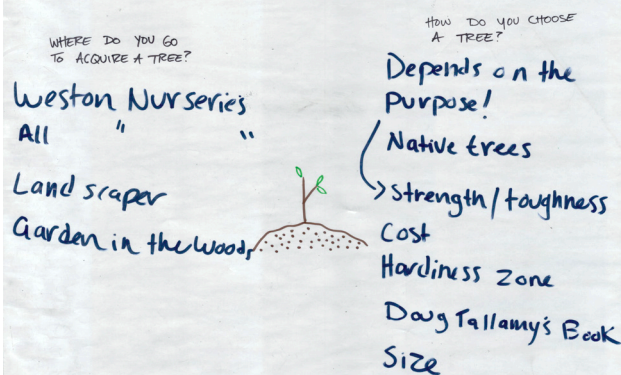 WHERE DO YOU GO
TO ACQUIRE A TREE?
Weston Nurseries
All " "
Landscaper
Garden in the Woods
HOW DO YOU CHOOSE
A TREE?
Depends on the
Purpose!
Native trees
Strength/toughness
Cost
Hardiness Zone
Doug Tallamy's Book
Size